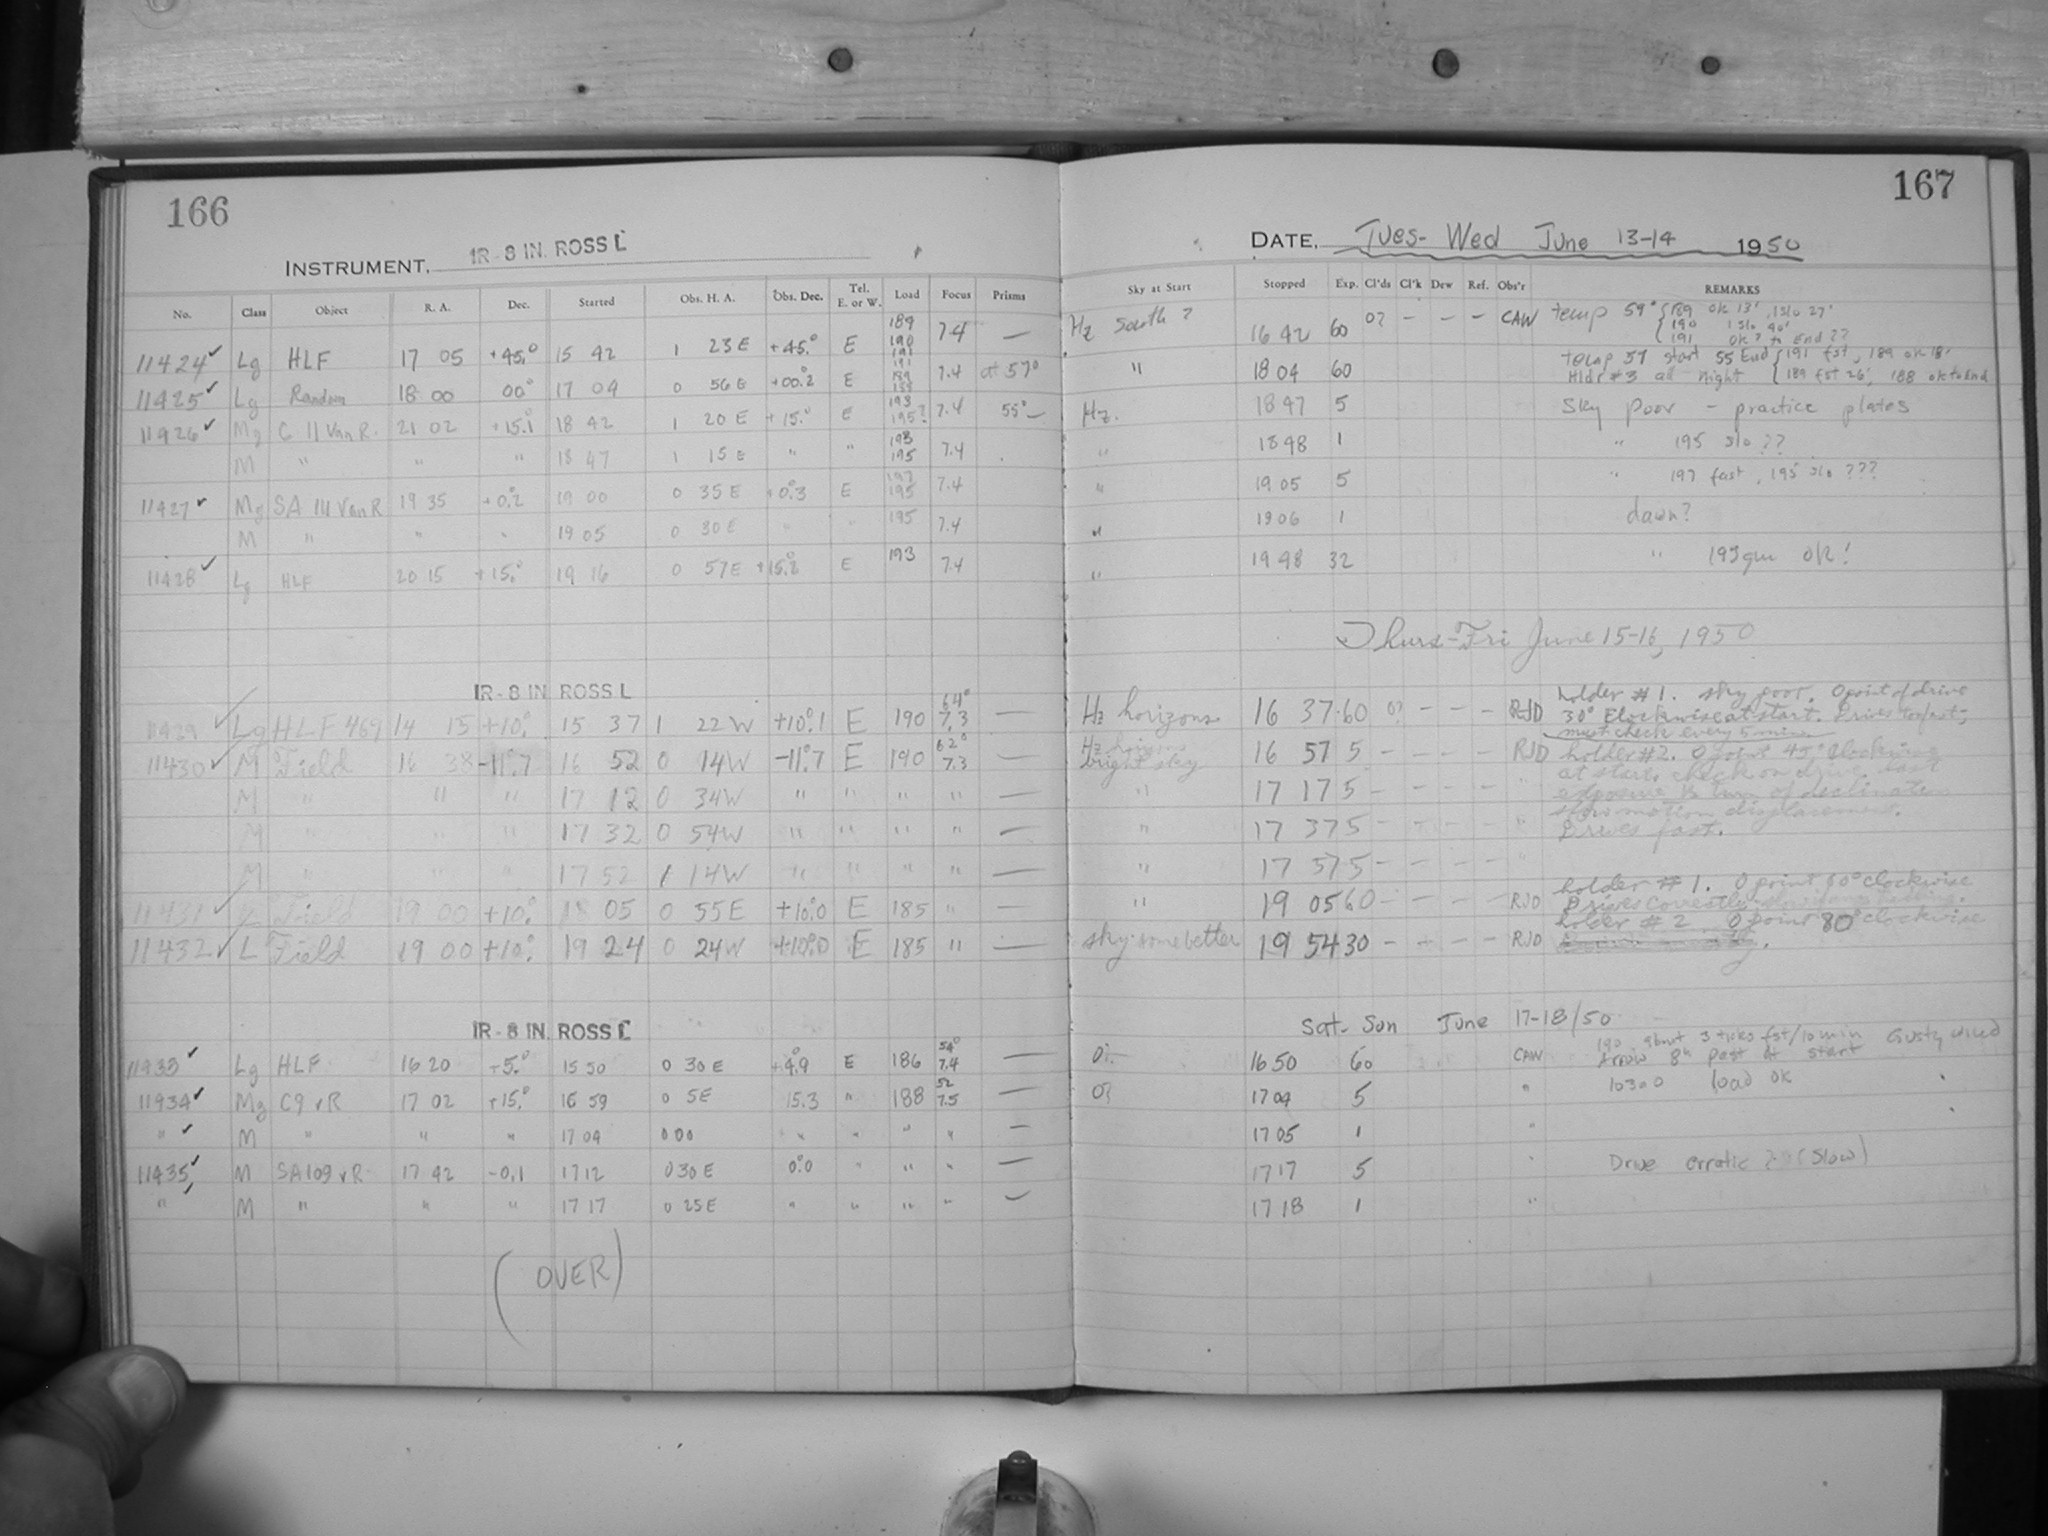 166
167
INSTRUMENT, IR-8 IN. ROSS L
DATE, Tues- Wed June 13-14 1950
No. Class Object R. A. Dec. Started Obs. H. A. Obs. Dec. Tel. E. or W. Load Focus Prisms Sky at Start Stopped Exp. Cl'ds Cl'k Dew Ref. Obs'r REMARKS
11424 ✓ Lg HLF 17 05 +45.° 15 42 1 23 E +45.° E 189 190 191 7.4 — Hz South ? 16 42 60 0? - - - CAW temp 59° { 189 ok 13', slo 27' { 190 slo 40' { 191 ok ? to End ??
11425 ✓ Lg Random 18 00 00° 17 04 0 56 E +00.°2 E 191 189 188 7.4 at 57° " 18 04 60 temp 57 start 55 End { 191 fst, 189 ok 18' Hldr #3 all night { 189 fst 26', 188 ok to End
11426 ✓ Mg C 11 Van R. 21 02 +15.1 18 42 1 20 E +15.° E 193 195? 7.4 55° — Hz. 18 47 5 Sky poor - practice plates
M " " " 18 47 1 15 E " " 193 195 7.4 " 18 48 1 " 195 slo ??
11427 ✓ Mg SA 111 Van R 19 35 +0.2 19 00 0 35 E +0.3 E 197 195 7.4 " 19 05 5 " 197 fast, 195 slo ???
M " " " 19 05 0 30 E " " 195 7.4 " 19 06 1 dawn?
11428 ✓ Lg HLF 20 15 +15.° 19 16 0 57 E +15.2 E 193 7.4 " 19 48 32 " 193 gm OK!
Thurs-Fri June 15-16, 1950
IR-8 IN. ROSS L
11429 ✓ Lg HLF 469 14 15 +10.° 15 37 1 22 W +10.°1 E 190 64° 7.3 — Hz horizons 16 37 60 0? - - - RJD holder #1. sky poor. 0 point of drive 30° Clockwise at start. Drives too fast; must check every 5 mins
11430 ✓ M Field 16 38 -11.°7 16 52 0 14W -11.°7 E 190 62° 7.3 — Hz horizons bright sky 16 57 5 - - - - RJD holder #2. 0 point 45° Clockwise
M " " " 17 12 0 34W " " " " — " 17 17 5 - - - - " at start. check on drive. last
M " " " 17 32 0 54W " " " " — " 17 37 5 - - - - " exposure ½ turn of declination slow motion displacement. Drives fast.
M " " " 17 52 1 14W " " " " — " 17 57 5 - - - - "
11431 ✓ L Field 19 00 +10.° 18 05 0 55 E +10.°0 E 185 " — " 19 05 60 - - - - RJD holder #1. 0 point clockwise Drives Correctly
11432 ✓ L Field 19 00 +10.° 19 24 0 24W +10.°0 E 185 " — sky some better 19 54 30 - - - - RJD holder #2 0 point 80° clockwise
IR-8 IN. ROSS L
Sat- Sun June 17-18/50
11433 ✓ Lg HLF 16 20 +5.° 15 50 0 30 E +4.9 E 186 54° 7.4 — 0? 16 50 60 CAW 190 about 3 ticks fst/10 min Gusty wind Arrow 8h past at start
11434 ✓ Mg C9 vR 17 02 +15.° 16 59 0 5E 15.3 " 188 52 7.5 — 0? 17 04 5 " 103aO load OK
" ✓ M " " " 17 04 0 00 " " " " — 17 05 1 "
11435 ✓ M SA109 vR 17 42 -0.1 17 12 0 30 E 0.°0 " " " — 17 17 5 " Drive erratic ?? (slow)
" ✓ M " " " 17 17 0 25E " " " " — 17 18 1 "
(OVER)